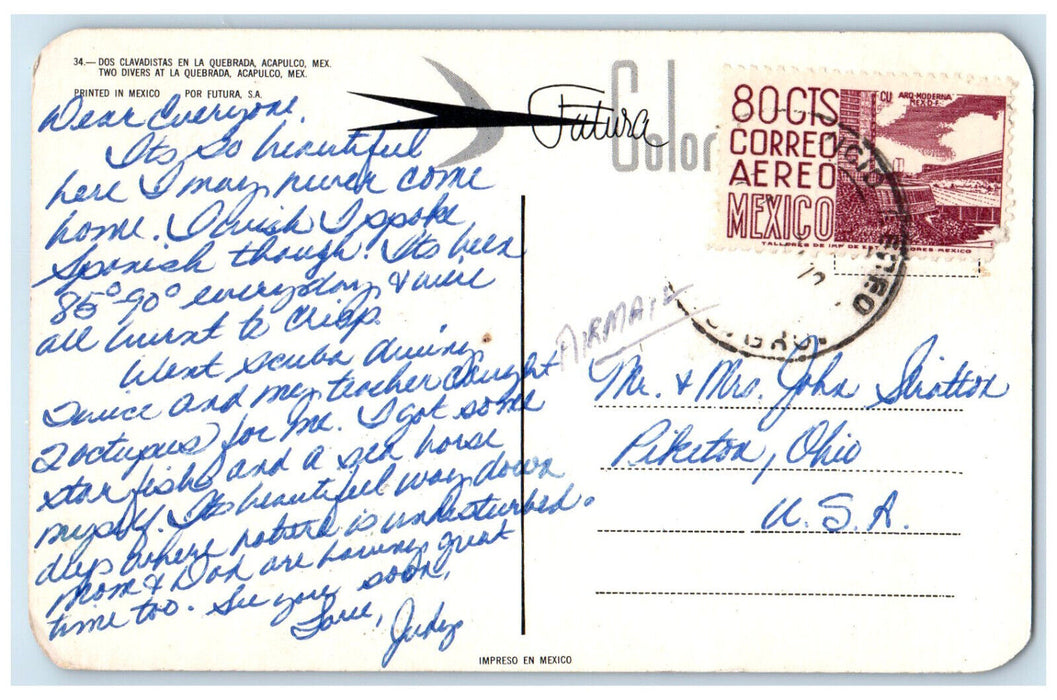 34.— DOS CLAVADISTAS EN LA QUEBRADA, ACAPULCO, MEX.
TWO DIVERS AT LA QUEBRADA, ACAPULCO, MEX.
PRINTED IN MEXICO POR FUTURA, S.A.
Futura
Color
80 CTS
CORREO
AEREO
MEXICO
CU ARQ-MODERNA
MEX-D-F.
Dear Everyone,
Its so beautiful
here I may never come
home. I wish I spoke
Spanish though. Its been
85°-90° everyday & we're
all burnt to crisp.
Went scuba diving
twice and my teacher caught
2 octupus for me. I got some
star fishs and a sea horse
myself. Its beautiful way down
deep where nature is undisturbed.
Mom & Dad are having great
time too. See you soon,
Love,
Judy
AIRMAIL
Mr. & Mrs. John Stratton
Piketon, Ohio
U.S.A.
IMPRESO EN MEXICO